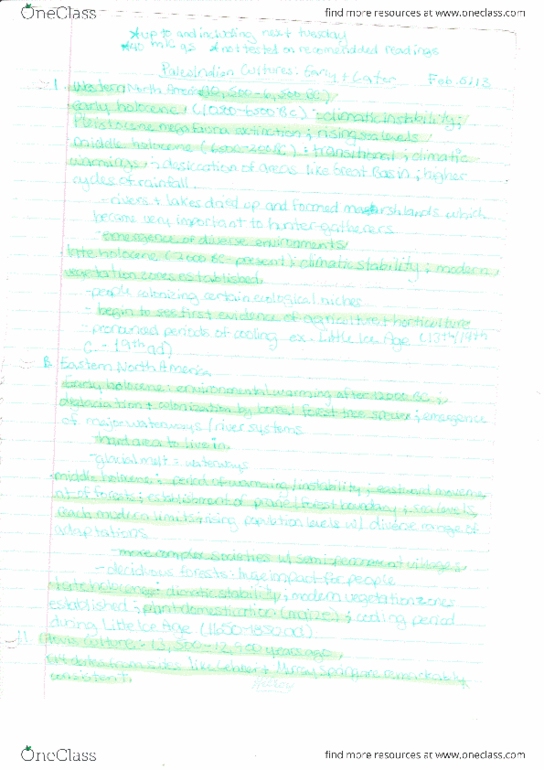 OneClass
find more resources at oneclass.com
*up to and including next tuesday
*not tested on recommended readings
PaleoIndian Cultures: Early + Later Feb. 5/13
I. Western North America
early holocene : climatic instability ;
Pleistocene mega fauna extinction ; rising sea levels
middle holocene : transitional ; climatic
warnings ; desiccation of areas like Great Basin ; higher
cycles of rainfall.
- rivers + lakes dried up and formed marshlands which
became very important to hunter-gatherers
- emergence of diverse environments
late holocene (2000 BC - present) : climatic stability ; modern
vegetation zones established.
- people colonizing certain ecological niches
- begin to see first evidence of agriculture + horticulture
- pronounced periods of cooling ex. Little Ice Age
C. - 19th ad)
B. Eastern North America
Early holocene : environmental warming after 12000 BC ;
deglaciation + colonization by boreal forest tree species ; emergence
of major waterways / river systems
- hard area to live in
- glacial melt = waterways
middle holocene : period of warming / instability ; eastward
of forests ; establishment of prairie / forest boundary ; sea levels
reach modern limits ; rising population levels w/ diverse range of
adaptations.
- more complex societies w/ semi-permanent villages
- deciduous forests - huge impact for people
late holocene : climatic stability ; modern vegetation zones
established ; plant domestication (maize) ; cooling period
during Little Ice Age (1650-1850 ad)
II. Clovis culture : 13,500 - 12,900 years ago
sites like Lehner + Murray Springs are remarkably
consistent.
OneClass
find more resources at oneclass.com